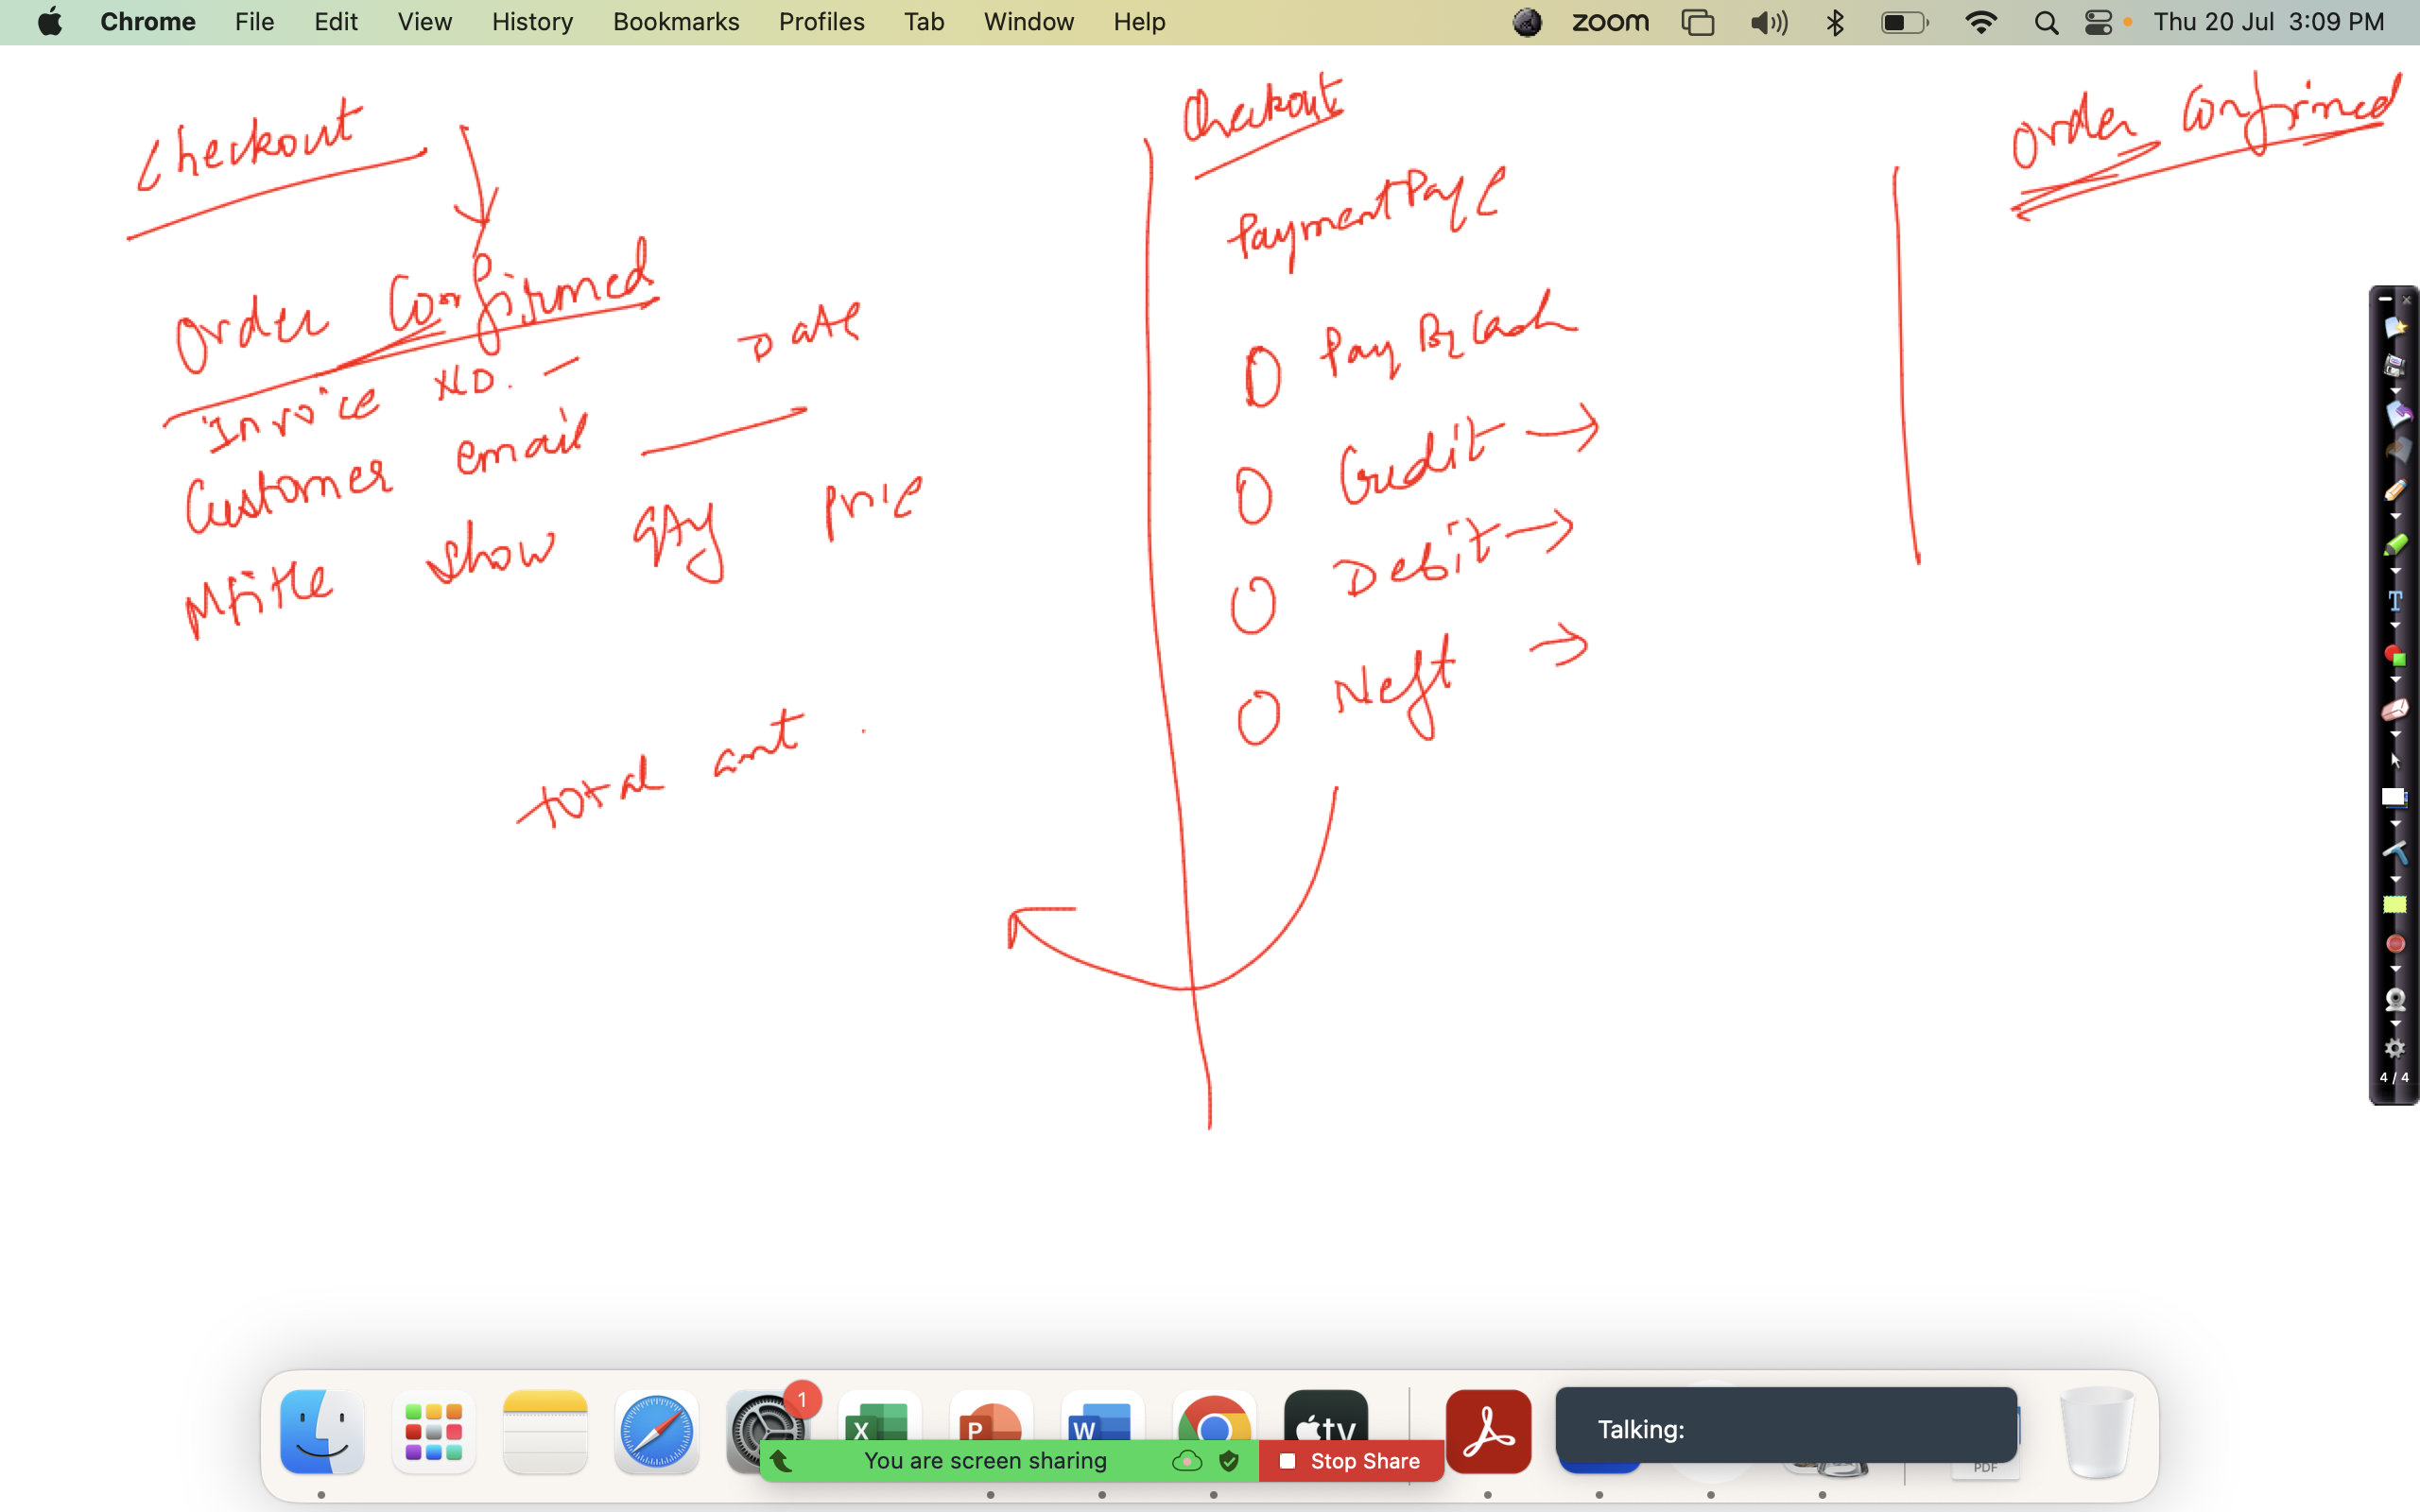 Chrome File Edit View History Bookmarks Profiles Tab Window Help zoom Thu 20 Jul 3:09 PM
Checkout
Order Confirmed
Invoice NO. - Date
Customer email
Mtitle show qty price
total amt .
Checkout
Payment Page
Pay By Cash
Credit →
Debit →
Neft →
Order Confirmed
T
4 / 4
1
X P W tv
You are screen sharing Stop Share
Talking:
PDF